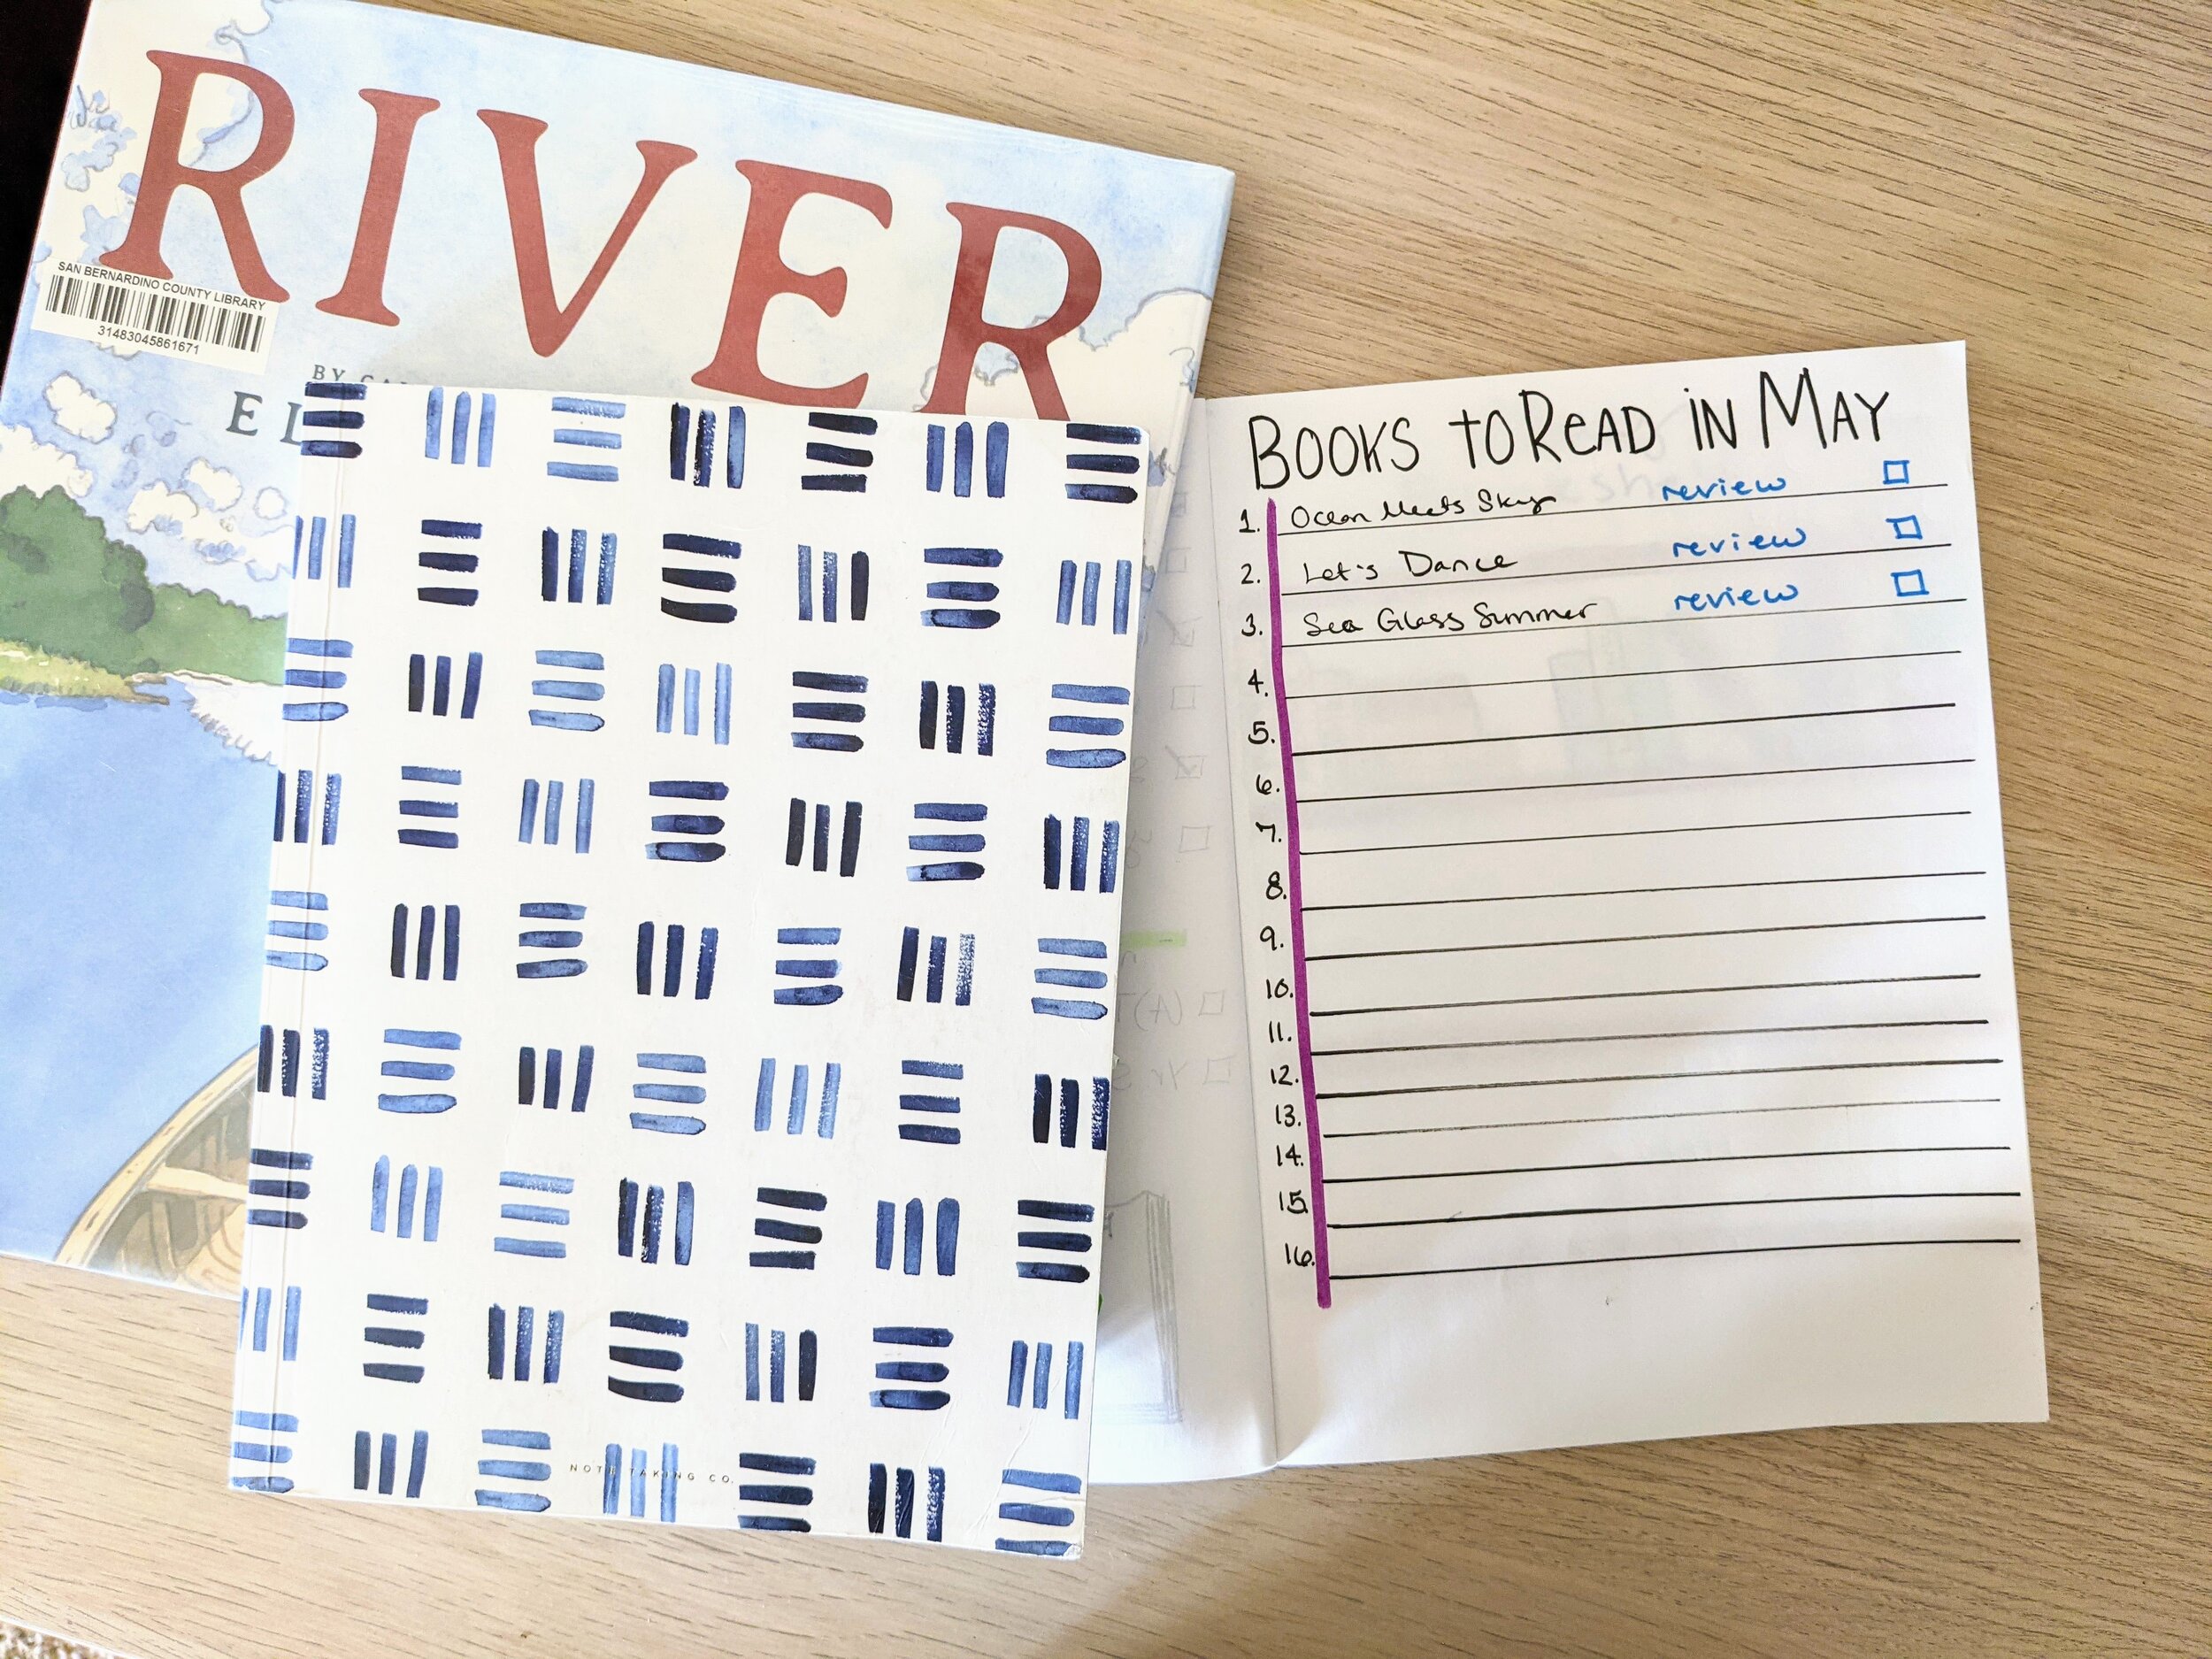 RIVER
SAN BERNARDINO COUNTY LIBRARY
31483045861671
BY
NOTE TAKING CO.
BOOKS TO READ IN MAY
1. Ocean Meets Sky review
2. Let's Dance review
3. Sea Glass Summer review
4.
5.
6.
7.
8.
9.
10.
11.
12.
13.
14.
15.
16.